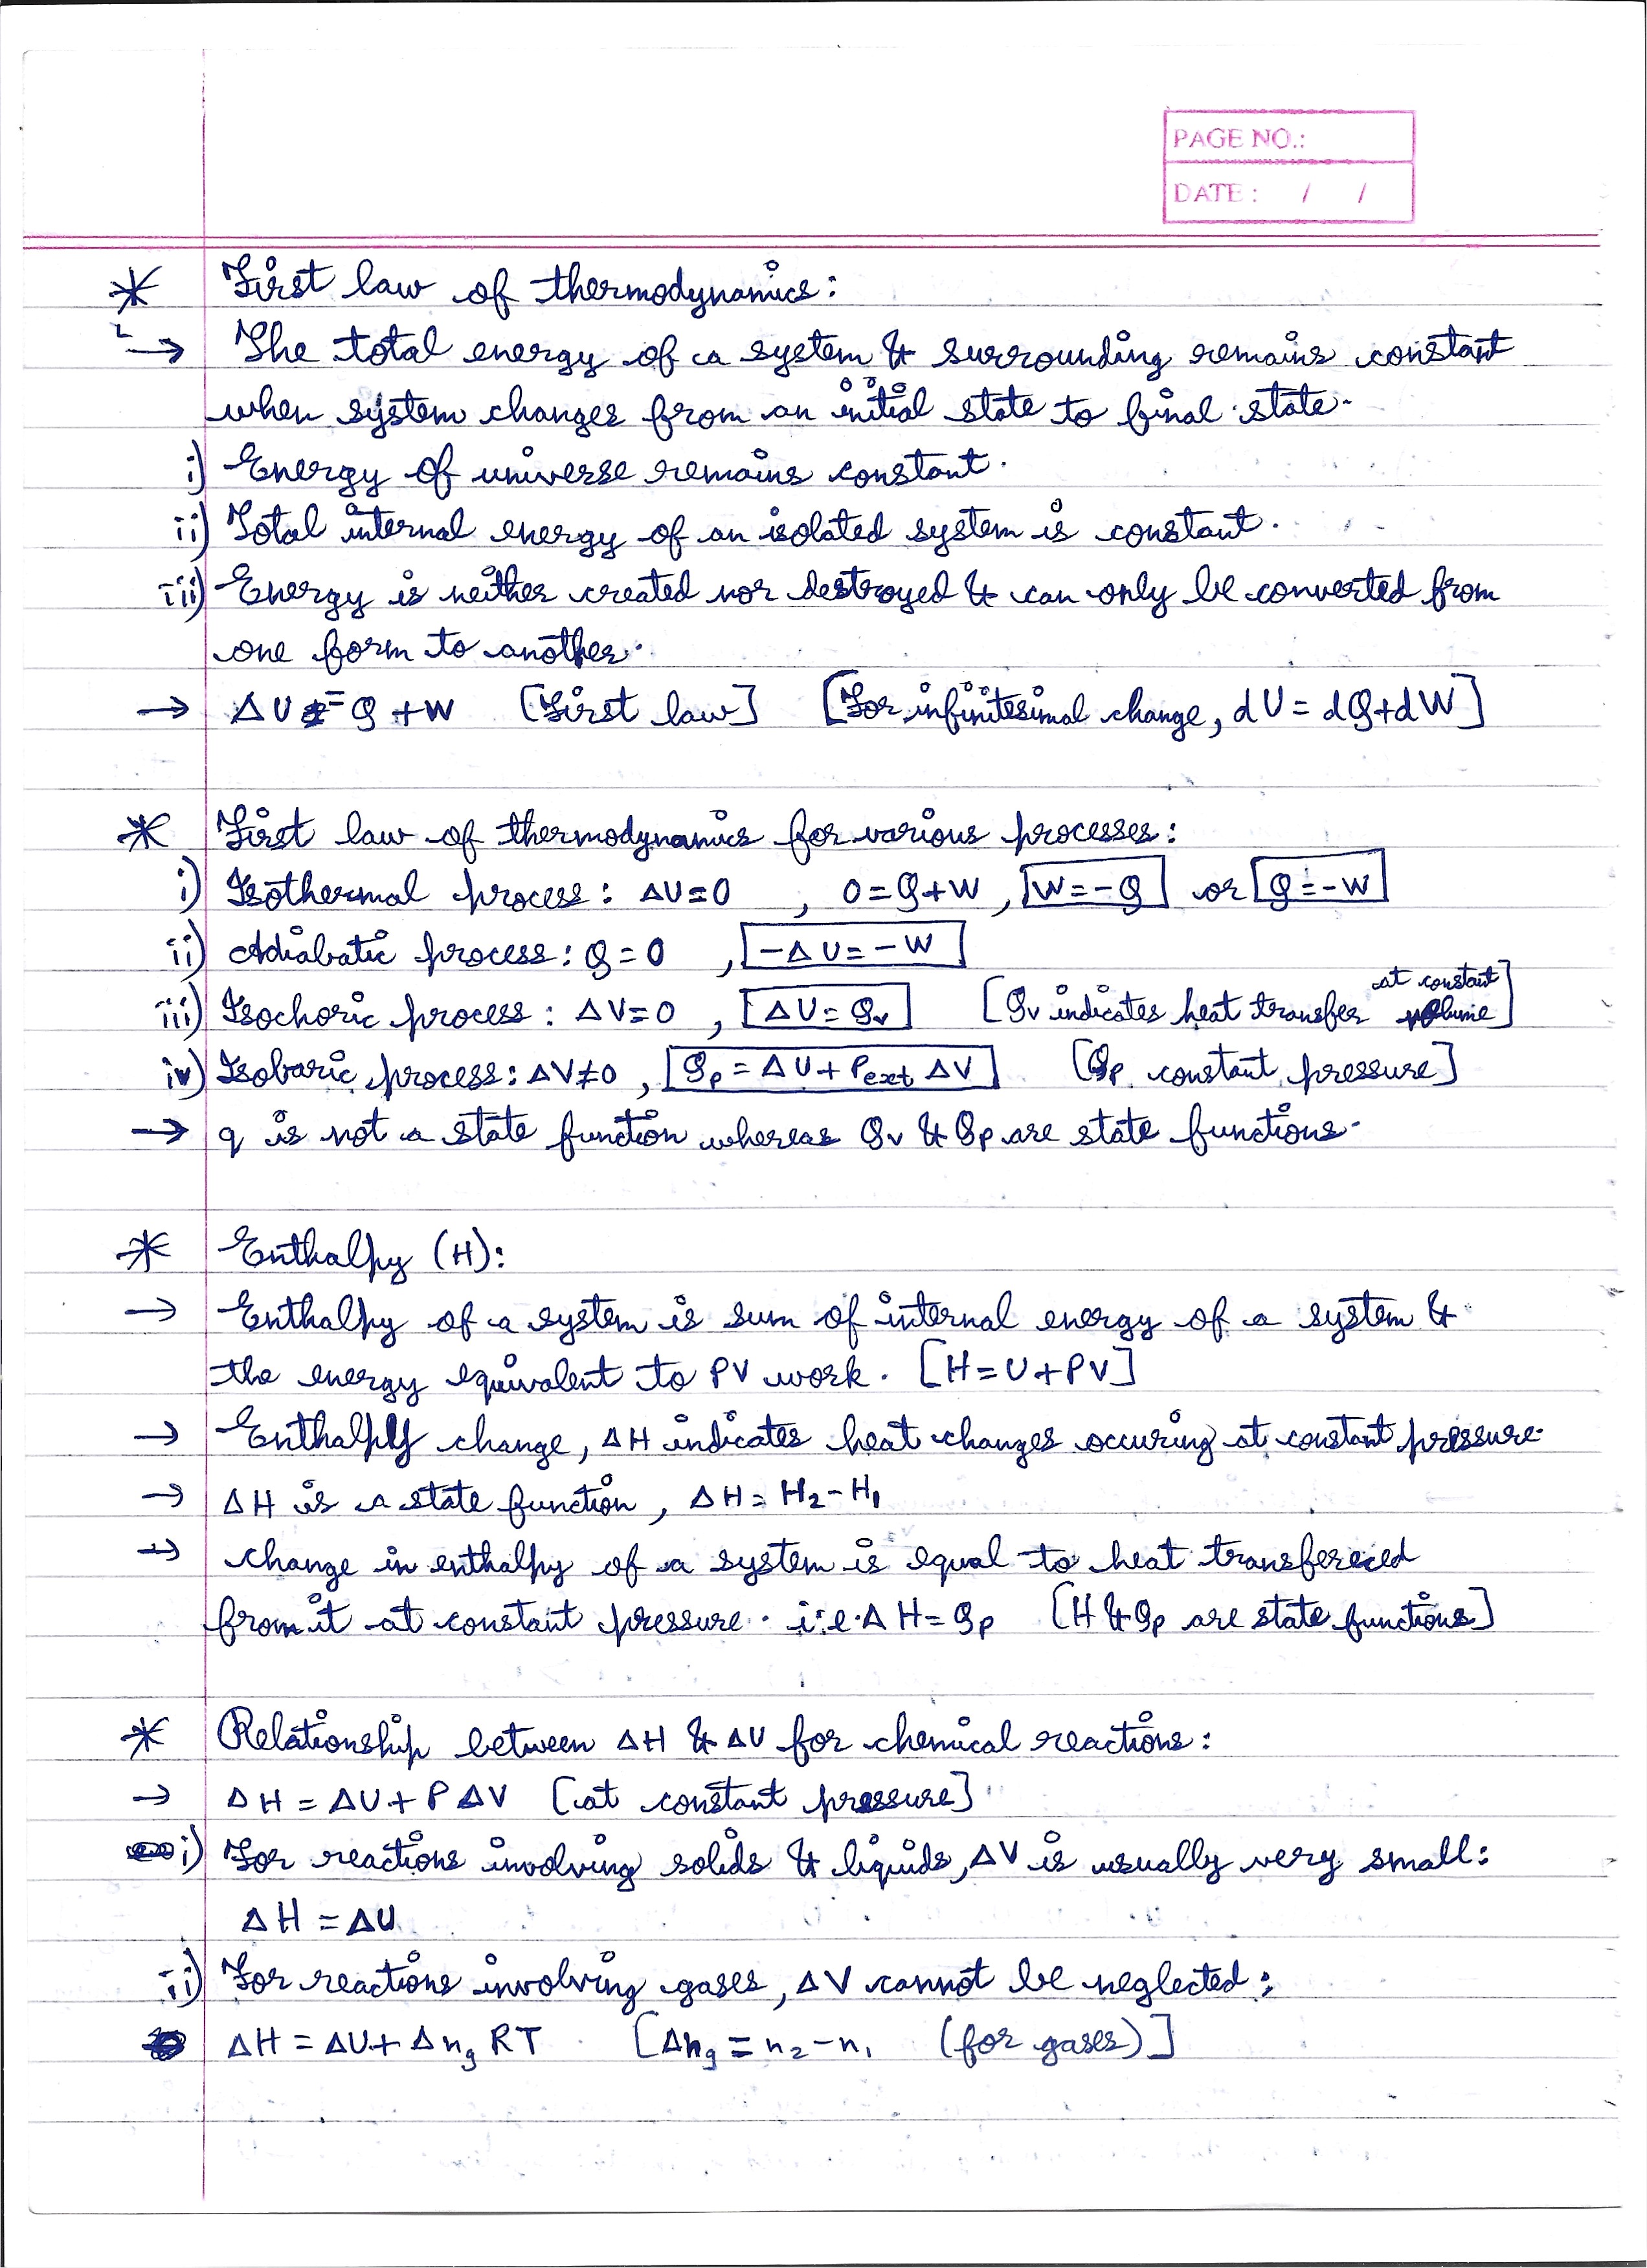 PAGE NO.:
DATE : / /
* First law of thermodynamics:
→ The total energy of a system & surrounding remains constant
when system changes from an initial state to final state.
i) Energy of universe remains constant.
ii) Total internal energy of an isolated system is constant.
iii) Energy is neither created nor destroyed & can only be converted from
one form to another.
→ ΔU = Q + W [First law] [For infinitesimal change, dU = dQ+dW]
* First law of thermodynamics for various processes:
i) Isothermal process: ΔU=0 , 0=Q+W , W=-Q or Q=-W
ii) Adiabatic process: Q=0 , -ΔU=-W
iii) Isochoric process: ΔV=0 , ΔU=Qv [Qv indicates heat transfer at constant volume]
iv) Isobaric process: ΔV≠0 , Qp = ΔU + Pext ΔV [Qp constant pressure]
→ q is not a state function whereas Qv & Qp are state functions.
* Enthalpy (H):
→ Enthalpy of a system is sum of internal energy of a system &
the energy equivalent to PV work. [H=U+PV]
→ Enthalpy change, ΔH indicates heat changes occuring at constant pressure.
→ ΔH is a state function, ΔH = H₂-H₁
→ change in enthalpy of a system is equal to heat transfereced
from it at constant pressure. i.e. ΔH=Qp [H & Qp are state functions]
* Relationship between ΔH & ΔU for chemical reactions:
→ ΔH = ΔU + PΔV [at constant pressure]
i) For reactions involving solids & liquids, ΔV is usually very small:
ΔH = ΔU
ii) For reactions involving gases, ΔV cannot be neglected:
ΔH = ΔU + Δng RT [Δng = n₂-n₁ (for gases)]